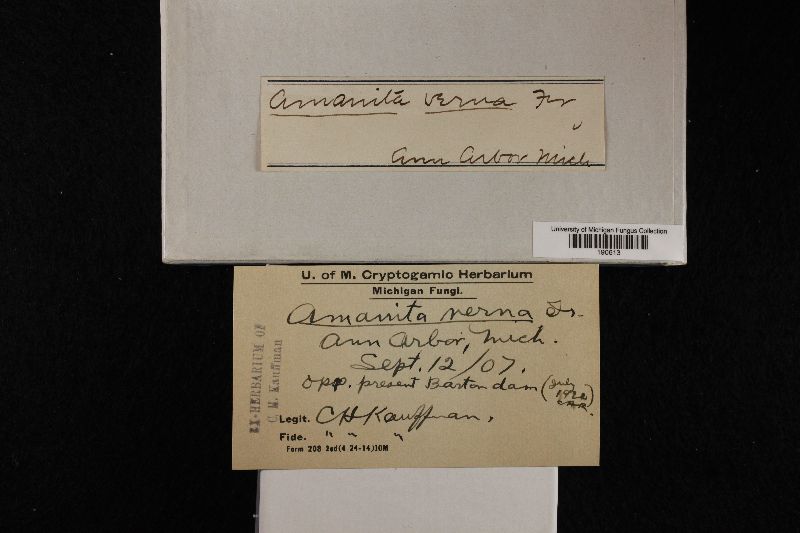 Amanita verna Fr
Ann Arbor Mich.
University of Michigan Fungus Collection
190613
U. of M. Cryptogamic Herbarium
Michigan Fungi.
Amanita verna Fr.
Ann Arbor, Mich.
Sept. 12/07.
opp. present Barton dam (July
1922
EX-HERBARIUM OF
C. H. Kauffman
Legit. CHKauffman.
Fide. " " "
Form 208 2ed(4 24-14)10M